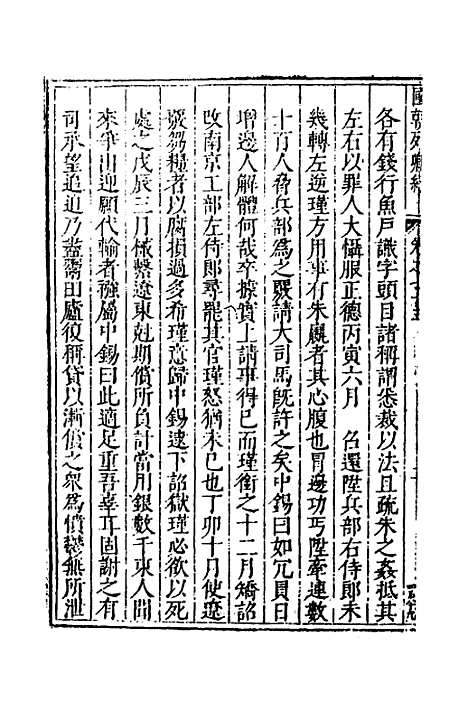 各有錢行魚戶識字頭目諸稱謂悉裁以法且疏朱之姦抵其
左右以罪人大懾服正德丙寅六月 召還陞兵部右侍郎未
幾轉左逆瑾方用事有朱贏者其心腹也冒邊功丐陞奉連數
十百人脅兵部為之覆請大司馬既許之矣中錫曰如冗員日
增邊人解體何哉卒據實上請事得已而瑾銜之十二月矯詔
改南京工部左侍郎尋罷其官瑾怒猶未已也丁卯十月使遼
覈芻糧者以腐損過多希瑾意歸中錫逮下詔獄瑾必欲以死
處之戊辰三月械繫遼東尅期償所負計當用銀數千東人聞
來爭出迎願代輸者夥屬中錫曰此適足重吾辜耳固謝之有
司承望追迫乃盡鬻田廬復稱貸以漸償之眾為憤鬱無所泄